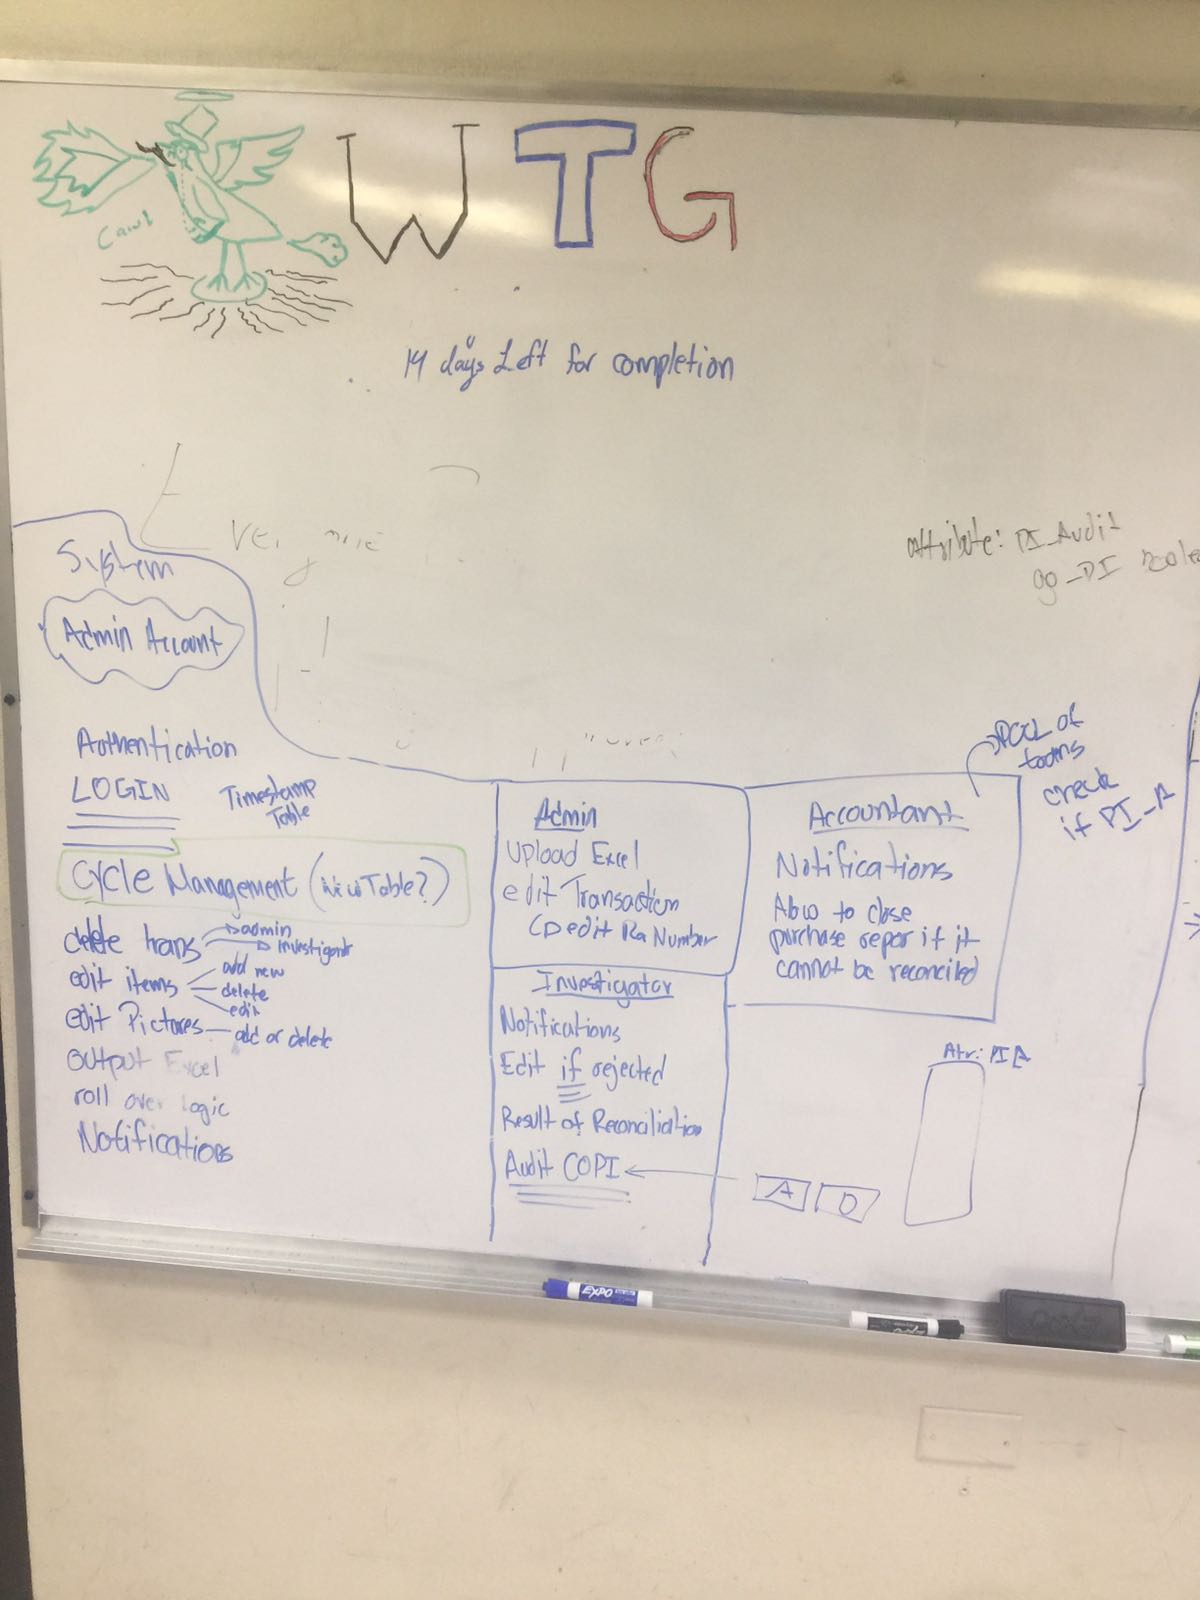 Caw!
WTG
14 days Left for completion
attribute: PI_Audit
System
Admin Account
Authentication
LOGIN
Timestamp
Table
Cycle Management (New Table?)
delete trans
admin
investigator
edit items
add new
delete
edit
edit Pictures
add or delete
output Excel
roll over logic
Notifications
Admin
Upload Excel
edit Transaction
edit Ra Number
Investigator
Notifications
Edit if rejected
Result of Reconciliation
Audit COPI
Accountant
Notifications
to close
purchase repor if it
cannot be reconciled
POOL of
check
if PI_A
A
D